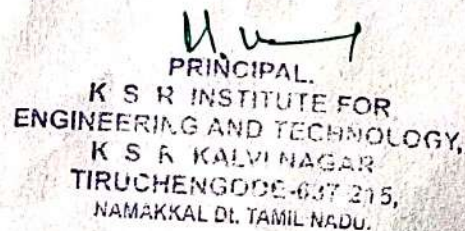 PRINCIPAL.
K S R INSTITUTE FOR
ENGINEERING AND TECHNOLOGY,
K S R KALVI NAGAR
TIRUCHENGODE-637 215,
NAMAKKAL Dt. TAMIL NADU.